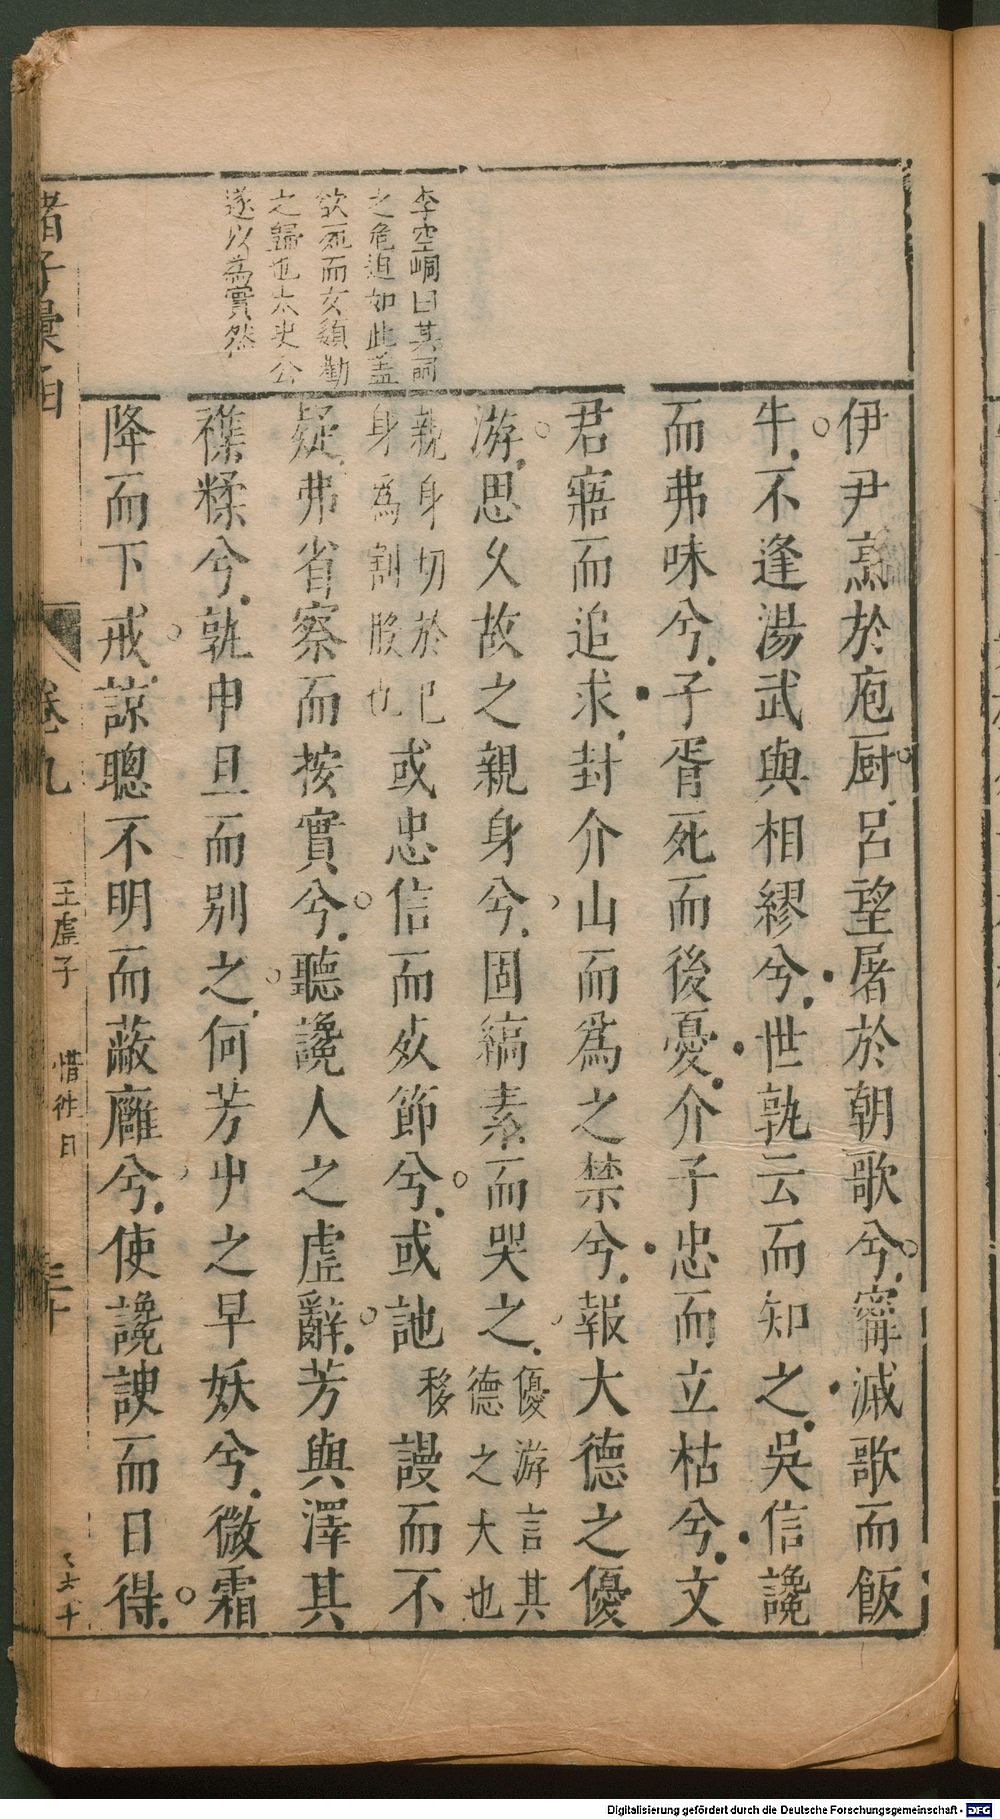 李空峒曰其詞
之危迫如此盖
欲死而女嬃勸
之歸也太史公
遂以為實然
伊尹烹於庖厨呂望屠於朝歌兮甯戚歌而飯
牛不逢湯武與相繆兮世孰云而知之吳信讒
而弗味兮子胥死而後憂介子忠而立枯兮文
君寤而追求封介山而爲之禁兮報大德之優
游思久故之親身兮固縞素而哭之優游言其
德之大也
移
親身切於己
身爲割股也或忠信而死節兮或訑謾而不
疑弗省察而按實兮聽讒人之虛辭芳與澤其
襍糅兮孰申旦而别之何芳屮之早妖兮微霜
降而下戒諒聰不明而蔽廱兮使讒諛而日得
諸子彙函
卷九
王虛子
惜徃日
三十